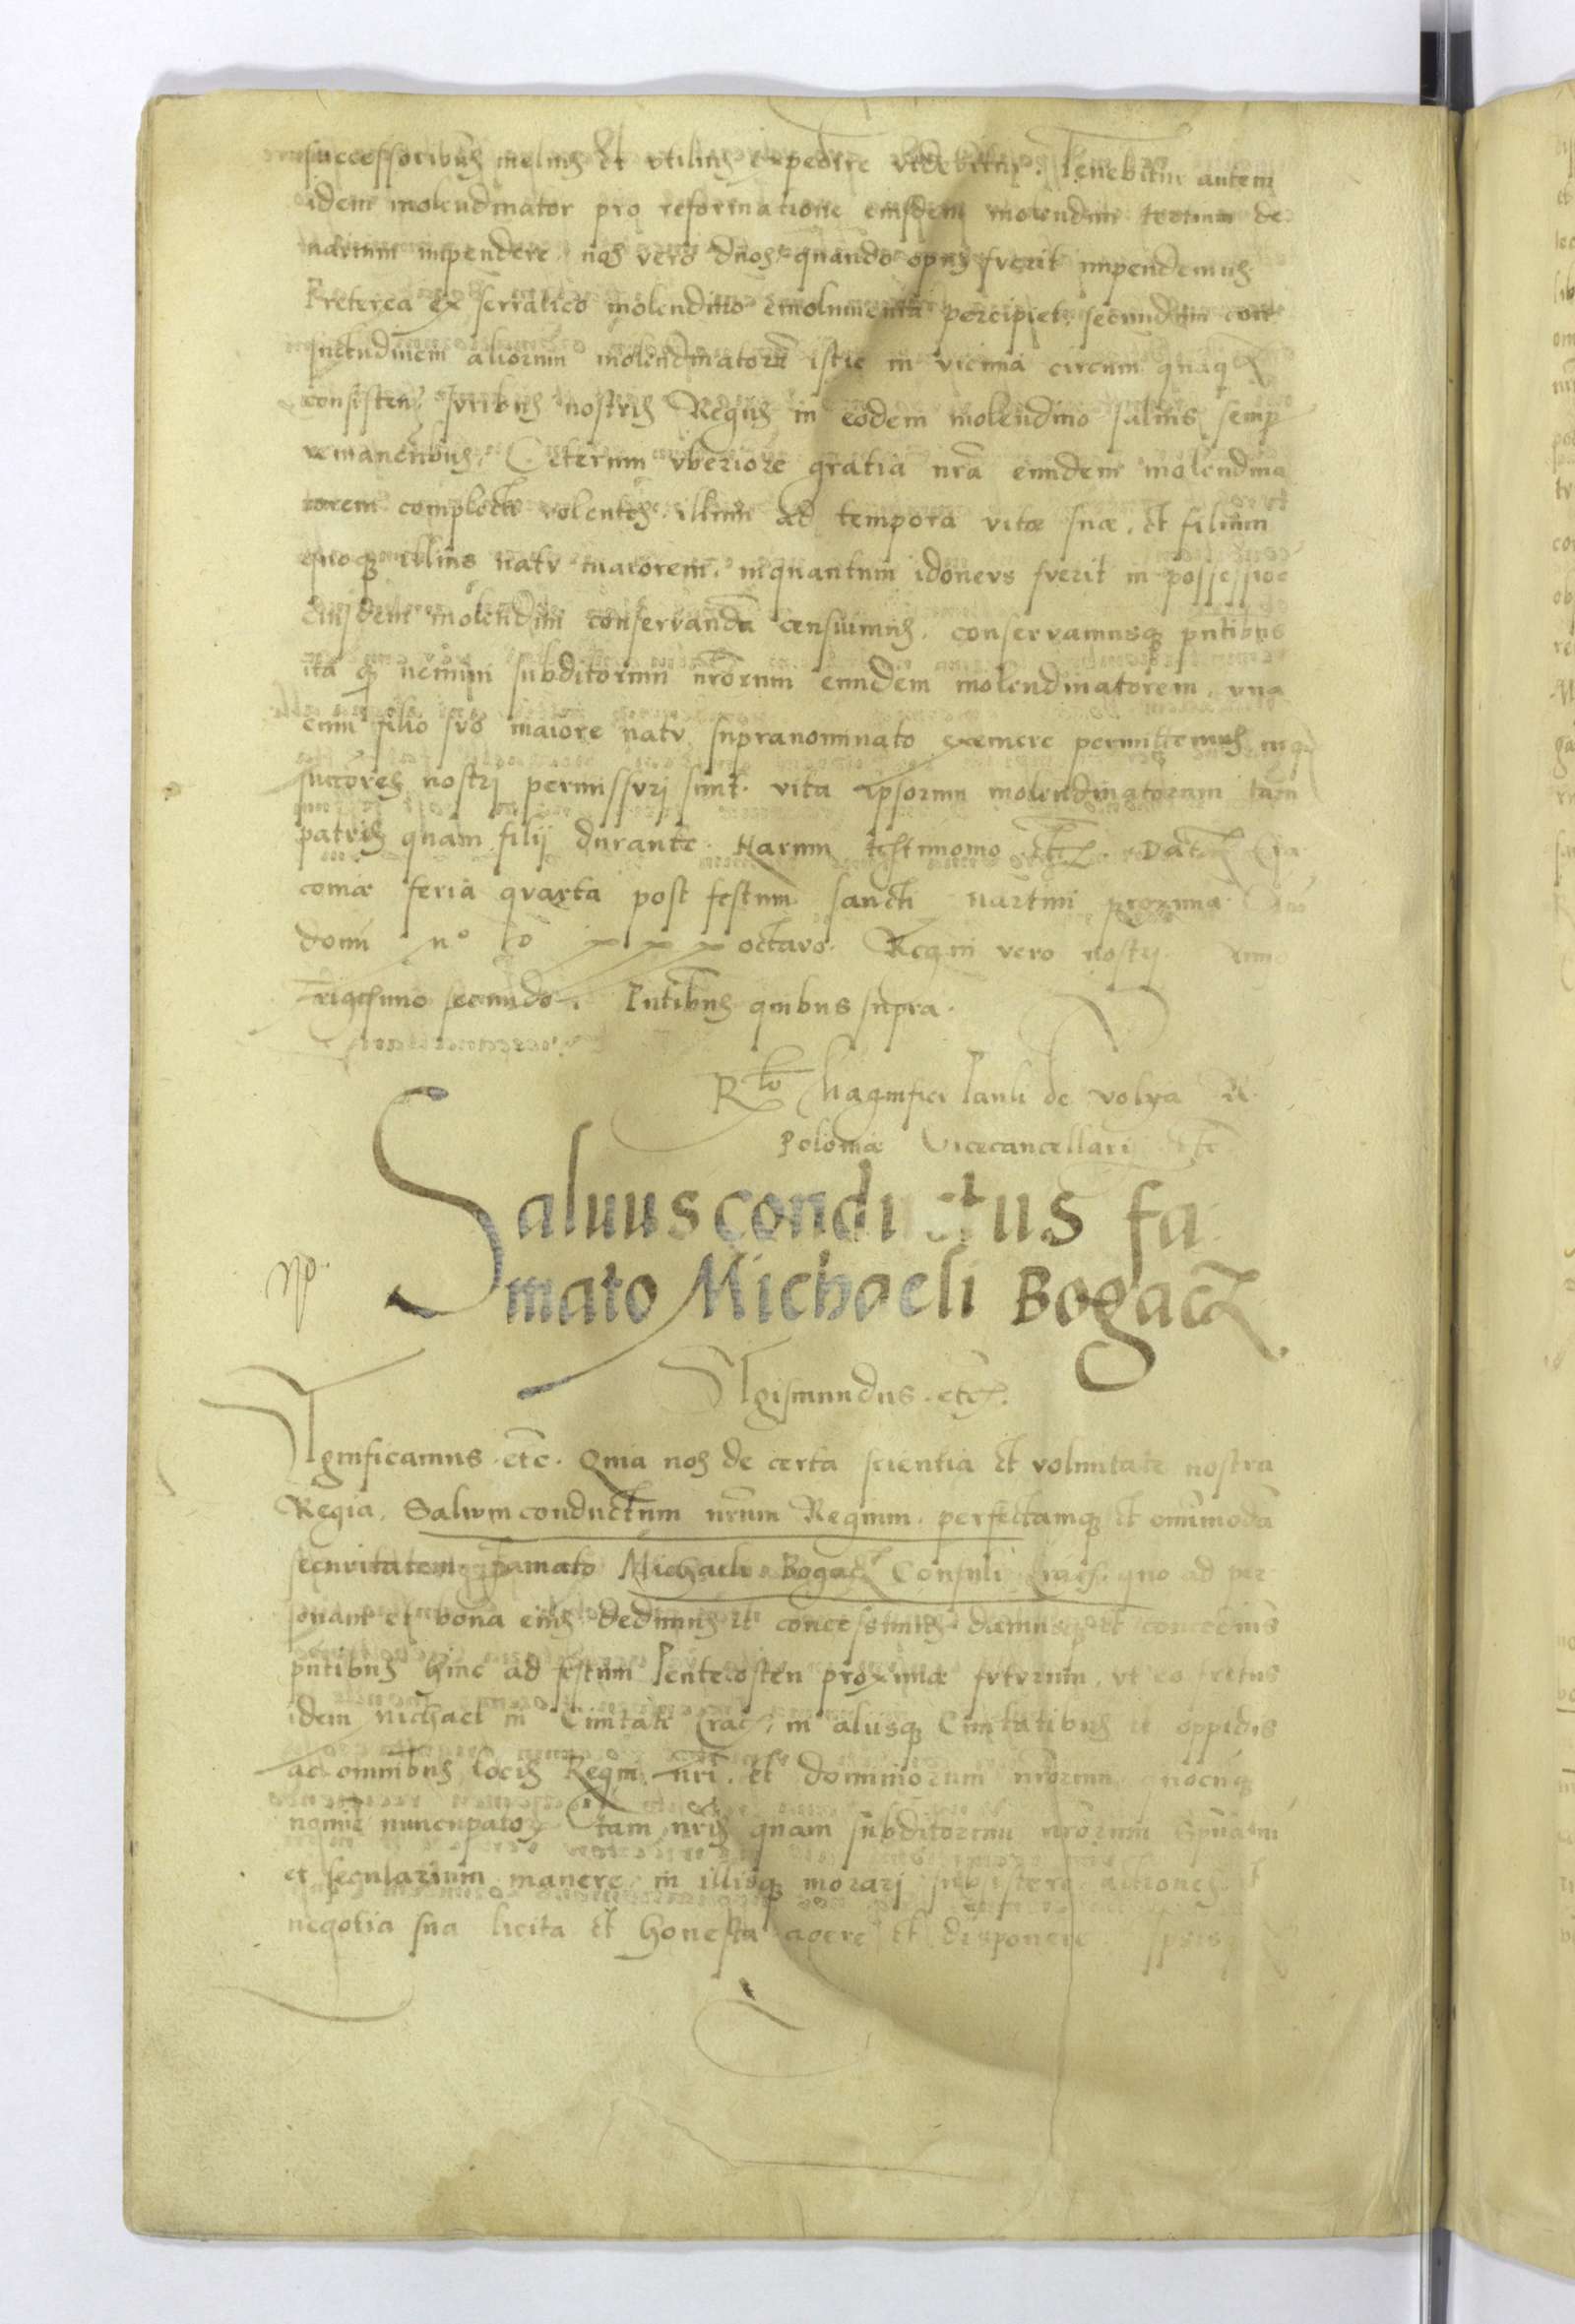 successoribus melius et utilius expedire videbitur. Tenebitur autem
idem molendinator pro reformatione eiusdem molendini tertium de
narium impendere, nos vero duos quando opus fuerit impendemus
Preterea ex serratico molendino emolumenta percipiet, secundum con
suetudinem aliorum molendinatorũ istic in vicinia circum quaq
consisteñ. Juribus nostris Regijs in eodem molendino salvis semp
remanentibus. Ceterum vberiore gratia nr̃a eundem molendina
torem complecti volentes, illum ad tempora vitæ suæ, et filium
quoq illius natv maiorem, inquantum idonevs fverit in possessioe
eiusdem molendini conservandũ censuimus, conservamusq pñtibus
ita q nemini subditorum nr̃orum eundem molendinatorem, vna
cum filio svo maiore natv supranominato exemere permittemus, neq
succores nostrj permissvrj sunt, vita ipsorum molendinatorum tam
patris quam filij durante. Harum testimonio etc. Dat Cra
coniæ feria qvarta post festum sancti Martini proxima. Año
domi Mº Dº xxx octavo. Regni vero nostrj Anno
trigesimo secundo. Pñtibus quibus supra.
Rtio Magnifici Pauli de Volya R.
Poloniæ Vicecancellarij etc
Saluus conductus fa
mato Michaeli Bogacz
Sigismundus. etc.
Significamus. etc. Quia nos de certa scientia et voluntate nostra
Regia, Salvum conductum nr̃um Regium, perfectamq et omnimodã
securitatem famato Michaeli Bogacz Consuli Crac. quo ad per
sonam et bona eius dedimus et concessimus damusq et concedimus
pñtibus hinc ad festum Pentecosten proxime fvtvrum, vt eo fretus
idem Michael in Civitate Crac, in alijsq Civitatibus et oppidis
ac omnibus locis Regni nr̃i, et dominiorum nr̃orum quocũq
nomie nuncupatoꝝ tam nr̃is quam subditorum nr̃orum Spũalium
et secularium manere, in illisq morarj subsistere, actiones et
negotia sua licita et honesta agere et disponere ipsisq